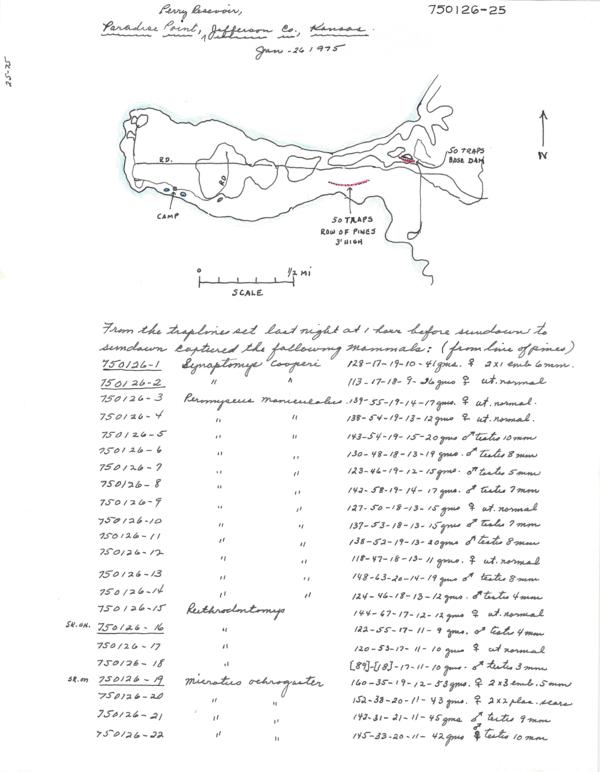 Perry Reservoir,
750126-25
Paradise Point, Jefferson Co., Kansas.
Jan-26 1975
25-75
50 TRAPS
BASE DAM
N
RD.
RD.
CAMP
50 TRAPS
ROW OF PINES
3' HIGH
0 1/2 MI
SCALE
From the traplines set last night at 1 hour before sundown to
sundown captured the following mammals: (from line of pines)
750126-1 Synaptomys cooperi 128-17-19-10-41gms. ♀ 2x1 emb 6mm.
750126-2 " " 113-17-18-9-26gms ♀ ut. normal
750126-3 Peromyscus maniculatus 139-55-19-14-17gms. ♀ ut. normal.
750126-4 " " 138-54-19-13-12gms ♀ ut. normal.
750126-5 " " 143-54-19-15-20gms ♂ testis 10mm
750126-6 " " 130-48-18-13-19gms. ♂ testes 8mm
750126-7 " " 123-46-19-12-15gms. ♂ testis 5mm
750126-8 " " 142-58-19-14-17gms. ♂ testes 7mm
750126-9 " " 127-50-18-13-15gms ♀ ut. normal
750126-10 " " 137-53-18-13-15gms ♂ testes 7mm
750126-11 " " 138-52-19-13-20gms ♂ testes 8mm
750126-12 " " 118-47-18-13-11gms. ♀ ut. normal
750126-13 " " 148-63-20-14-19gms ♂ testes 8mm
750126-14 " " 124-46-18-13-12gms. ♂ testes 4mm
750126-15 Reithrodontomys 144-67-17-12-12gms ♀ ut. normal
SK.ON. 750126-16 " 122-55-17-11-9 gms. ♂ testes 4mm
750126-17 " 120-53-17-11-10gms ♀ ut normal
750126-18 " [89]-[18]-17-11-10gms. ♂ testes 3mm
750126-19 Microtus ochrogaster 160-35-19-12-53gms. ♀ 2x3 emb. 5mm
750126-20 " " 152-38-20-11-43gms. ♀ 2x2 plac. scars
750126-21 " " 142-31-21-11-45gms ♂ testes 9mm
750126-22 " " 145-33-20-11-42gms ♂ testes 10mm